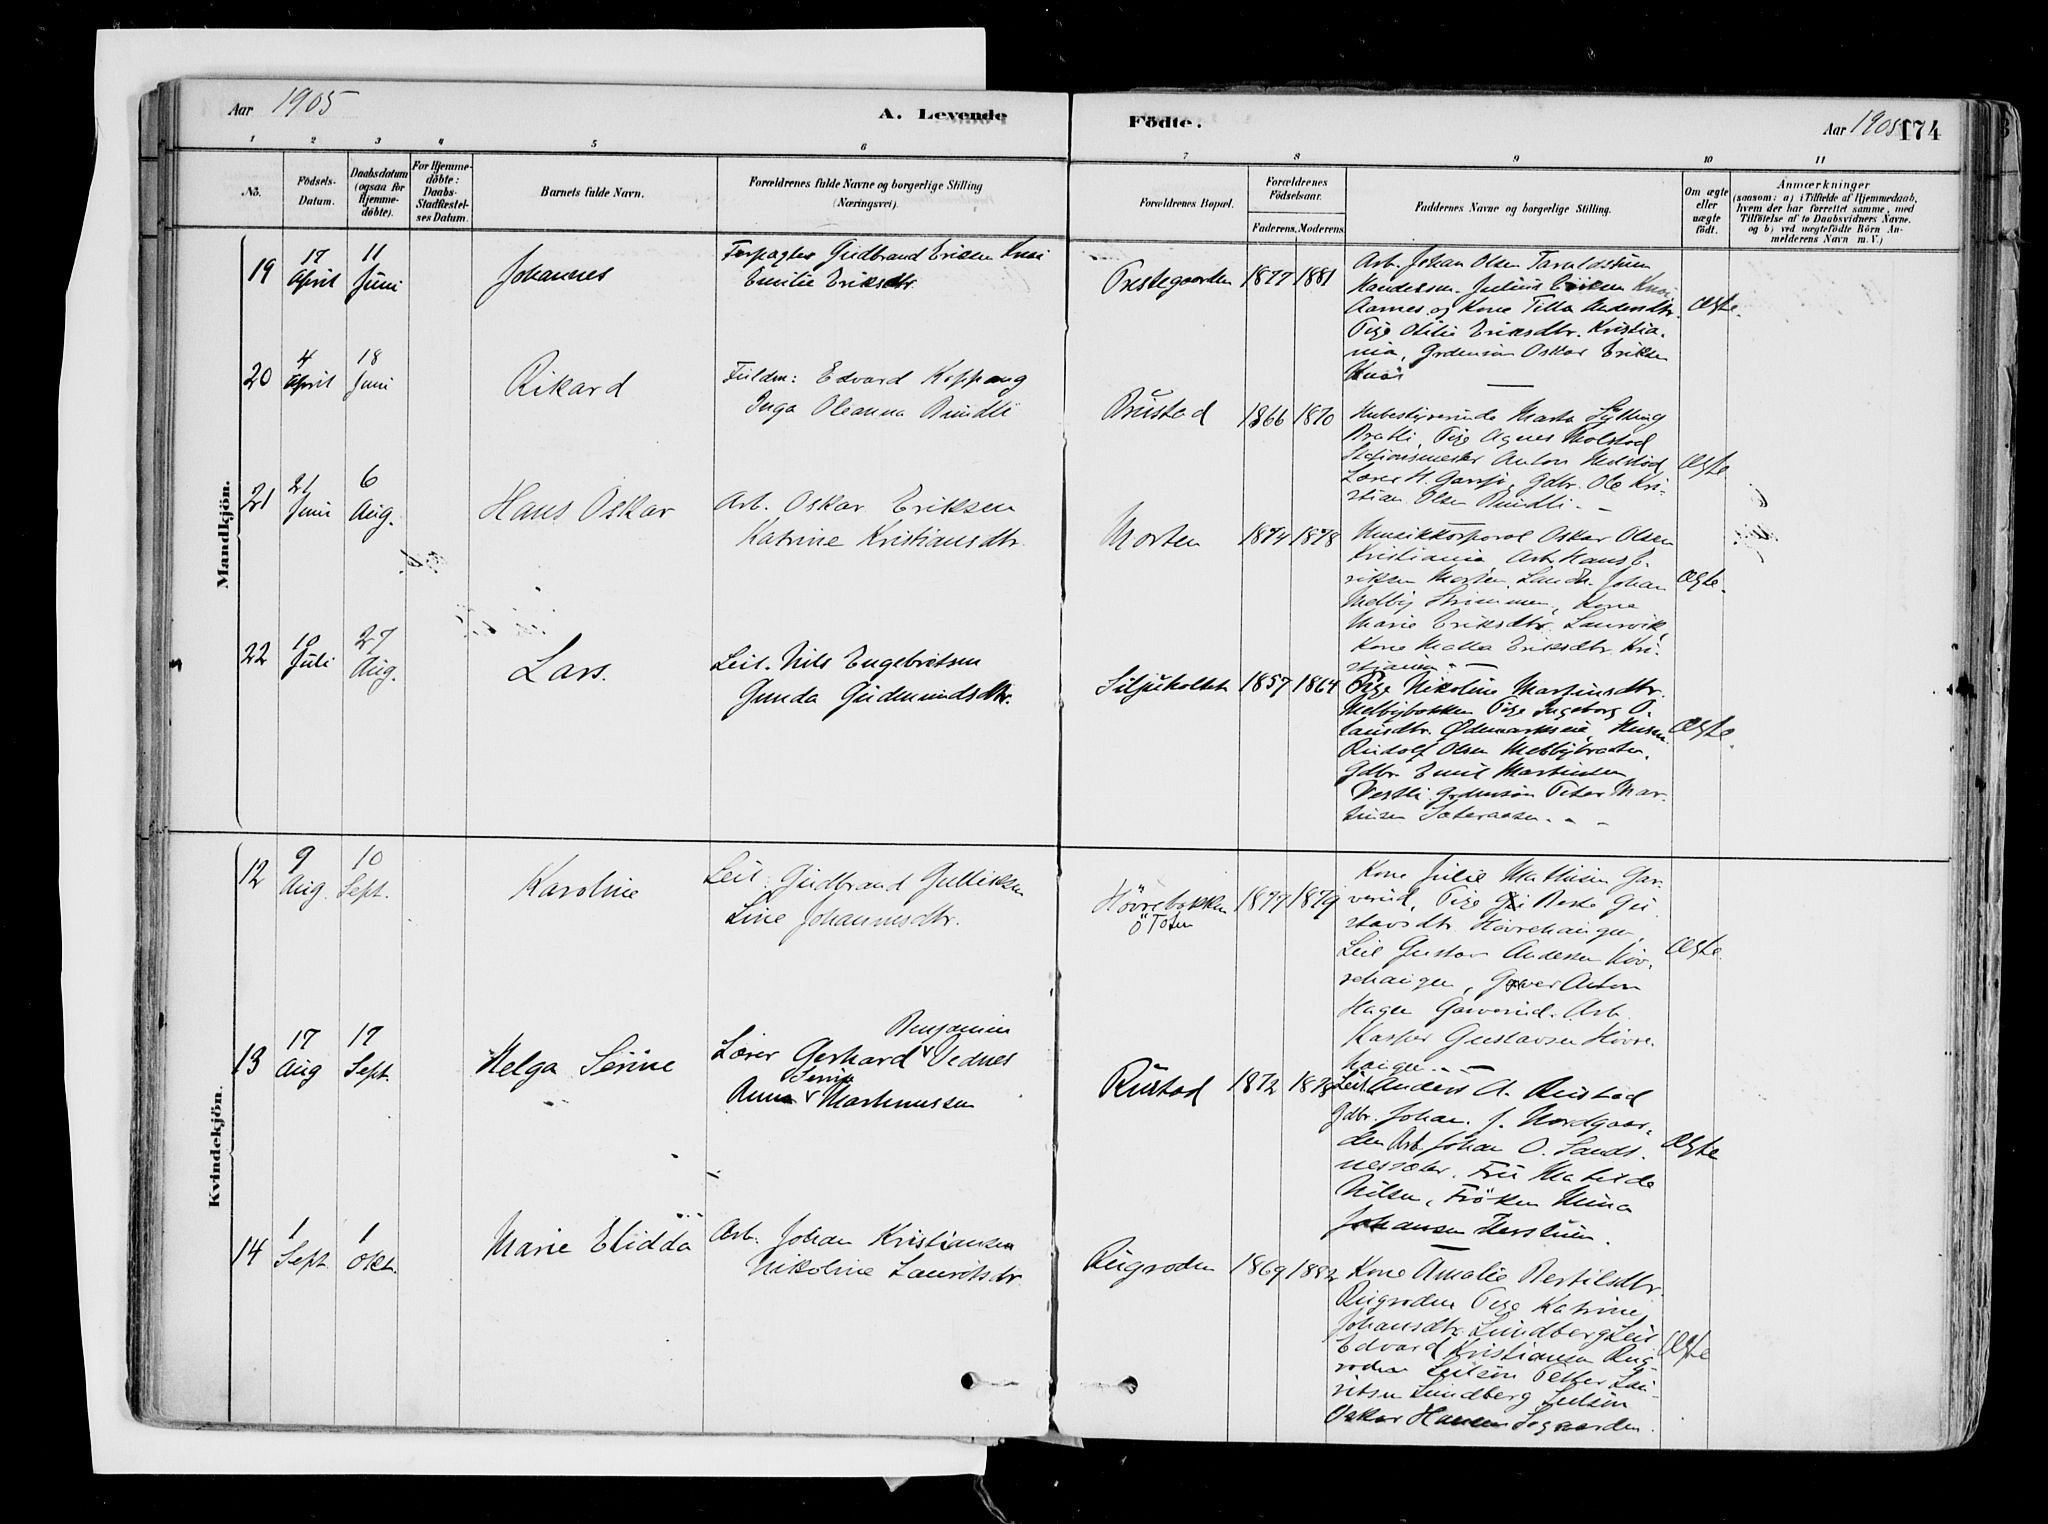 Aar 1905
A. Levende
Födte.
Aar 1905
174
1 2 3 4 5 6 7 8 9 10 11
No.
Födsels-
Datum.
Daabsdatum
(ogsaa for
Hjemme-
döbte).
For Hjemme-
döbte:
Daabs-
Stadfæstel-
ses Datum.
Barnets fulde Navn.
Forældrenes fulde Navne og borgerlige Stilling
(Næringsvei).
Forældrenes Bopæl.
Forældrenes
Födselsaar.
Faderens. Moderens.
Faddernes Navne og borgerlige Stilling.
Om ægte
eller
uægte
födt.
Anmærkninger
(saasom: a) i Tilfælde af Hjemmedaab,
hvem der har forrettet samme, med
Tilföielse af to Daabsvidners Navne.
og b) ved uægtefödte Börn An-
melderens Navn m. V.)
Mandkjön.
19
17 April
11 Juni
Johannes
Forpagter Gudbrand Eriksen Knai
Emilie Eriksdtr.
Prestegaarden
1877 1881
Arb. Johan Olsen Taraldstuen
Handelsm. Julius Eriksen Knai
Aarnes og Kone Tilla Andersdtr.
Pige Otilie Eriksdtr. Kristia-
nia, Grdmsøn Oskar Eriksen
Knai
Ægte.
20
4 April
18 Juni
Rikard
Fuldm: Edvard Koppang
Inga Oleanna Rundli
Rustad
1866 1870
Husbestyrerinde Marta Sylling
Bratli, Pige Agnes Molstad
Stationsmester Anton Molstad
Lærer H. Garsjø, Gdbr. Ole Kri-
stian Olsen Rundli.
Ægte
21
21 Juni
6 Aug.
Hans Oskar
Arb. Oskar Eriksen
Katrine Kristiansdtr.
Morten
1874 1878
Musikkorporal Oskar Olsen
Kristiania, Arb. Hans E-
riksen Morten, Landh. Johan
Melby Strømmen, Kone
Marie Eriksdtr. Laurvik,
Kone Matha Eriksdtr. Kri-
stiania.
Ægte.
22
10 Juli
27 Aug.
Lars.
Leil. Nils Engebretsen
Gunda Gudmundsdtr.
Siljuholtet
1857 1864
Pige Nikoline Martinsdtr.
Melbybakken Pige Ingeborg O-
lausdtr. Ødemarkseie, Husm.
Rudolf Olsen Melbybraaten,
Gdbr. Emil Martinsen
Vestli. Grdmsøn Peter Mar-
tinsen Sæteraasen.
Ægte.
Kvindekjön.
12
9 Aug.
10 Sept.
Karoline
Leil. Gudbrand Gulliksen
Line Johannesdtr.
Hövrebakken
Ö Toten
1877 1879
Kone Julie Mathisen Gar-
verud, Pige Berte Gu-
stavsdtr. Hövrehaugen,
Leil Gustav Andersen Höv-
rehaugen, Garver Anton
Hagen Garverud. Arb.
Kasper Gustavsen Hövre-
haugen.
Ægte.
13
17 Aug
17 Sept.
Helga Serine
Benjamin
Lærer Gerhard Vednes
Serine
Anna Martinussen
Rustad
1872 1878
Leil. Anders A. Rustad
Gdbr. Johan J. Nordgaar-
den Arb. Johan O. Sands-
nessæter. Fru Matilde
Nilsen, Fröken Mina
Johansen Herstuen.
Ægte
14
1 Sept.
1 Okt.
Marie Elidda
Arb. Johan Kristiansen
Nikoline Lauritsdtr.
Rugroden
1869 1882
Kone Amalie Bertilsdtr.
Rugroden Pige Katrine
Johansdtr. Lundberg Leil
Edvard Kristiansen Rug-
roden Leilsøn Petter Lau-
ritsen Lundberg Leilsøn
Oskar Hansen Sogaarden.
Ægte